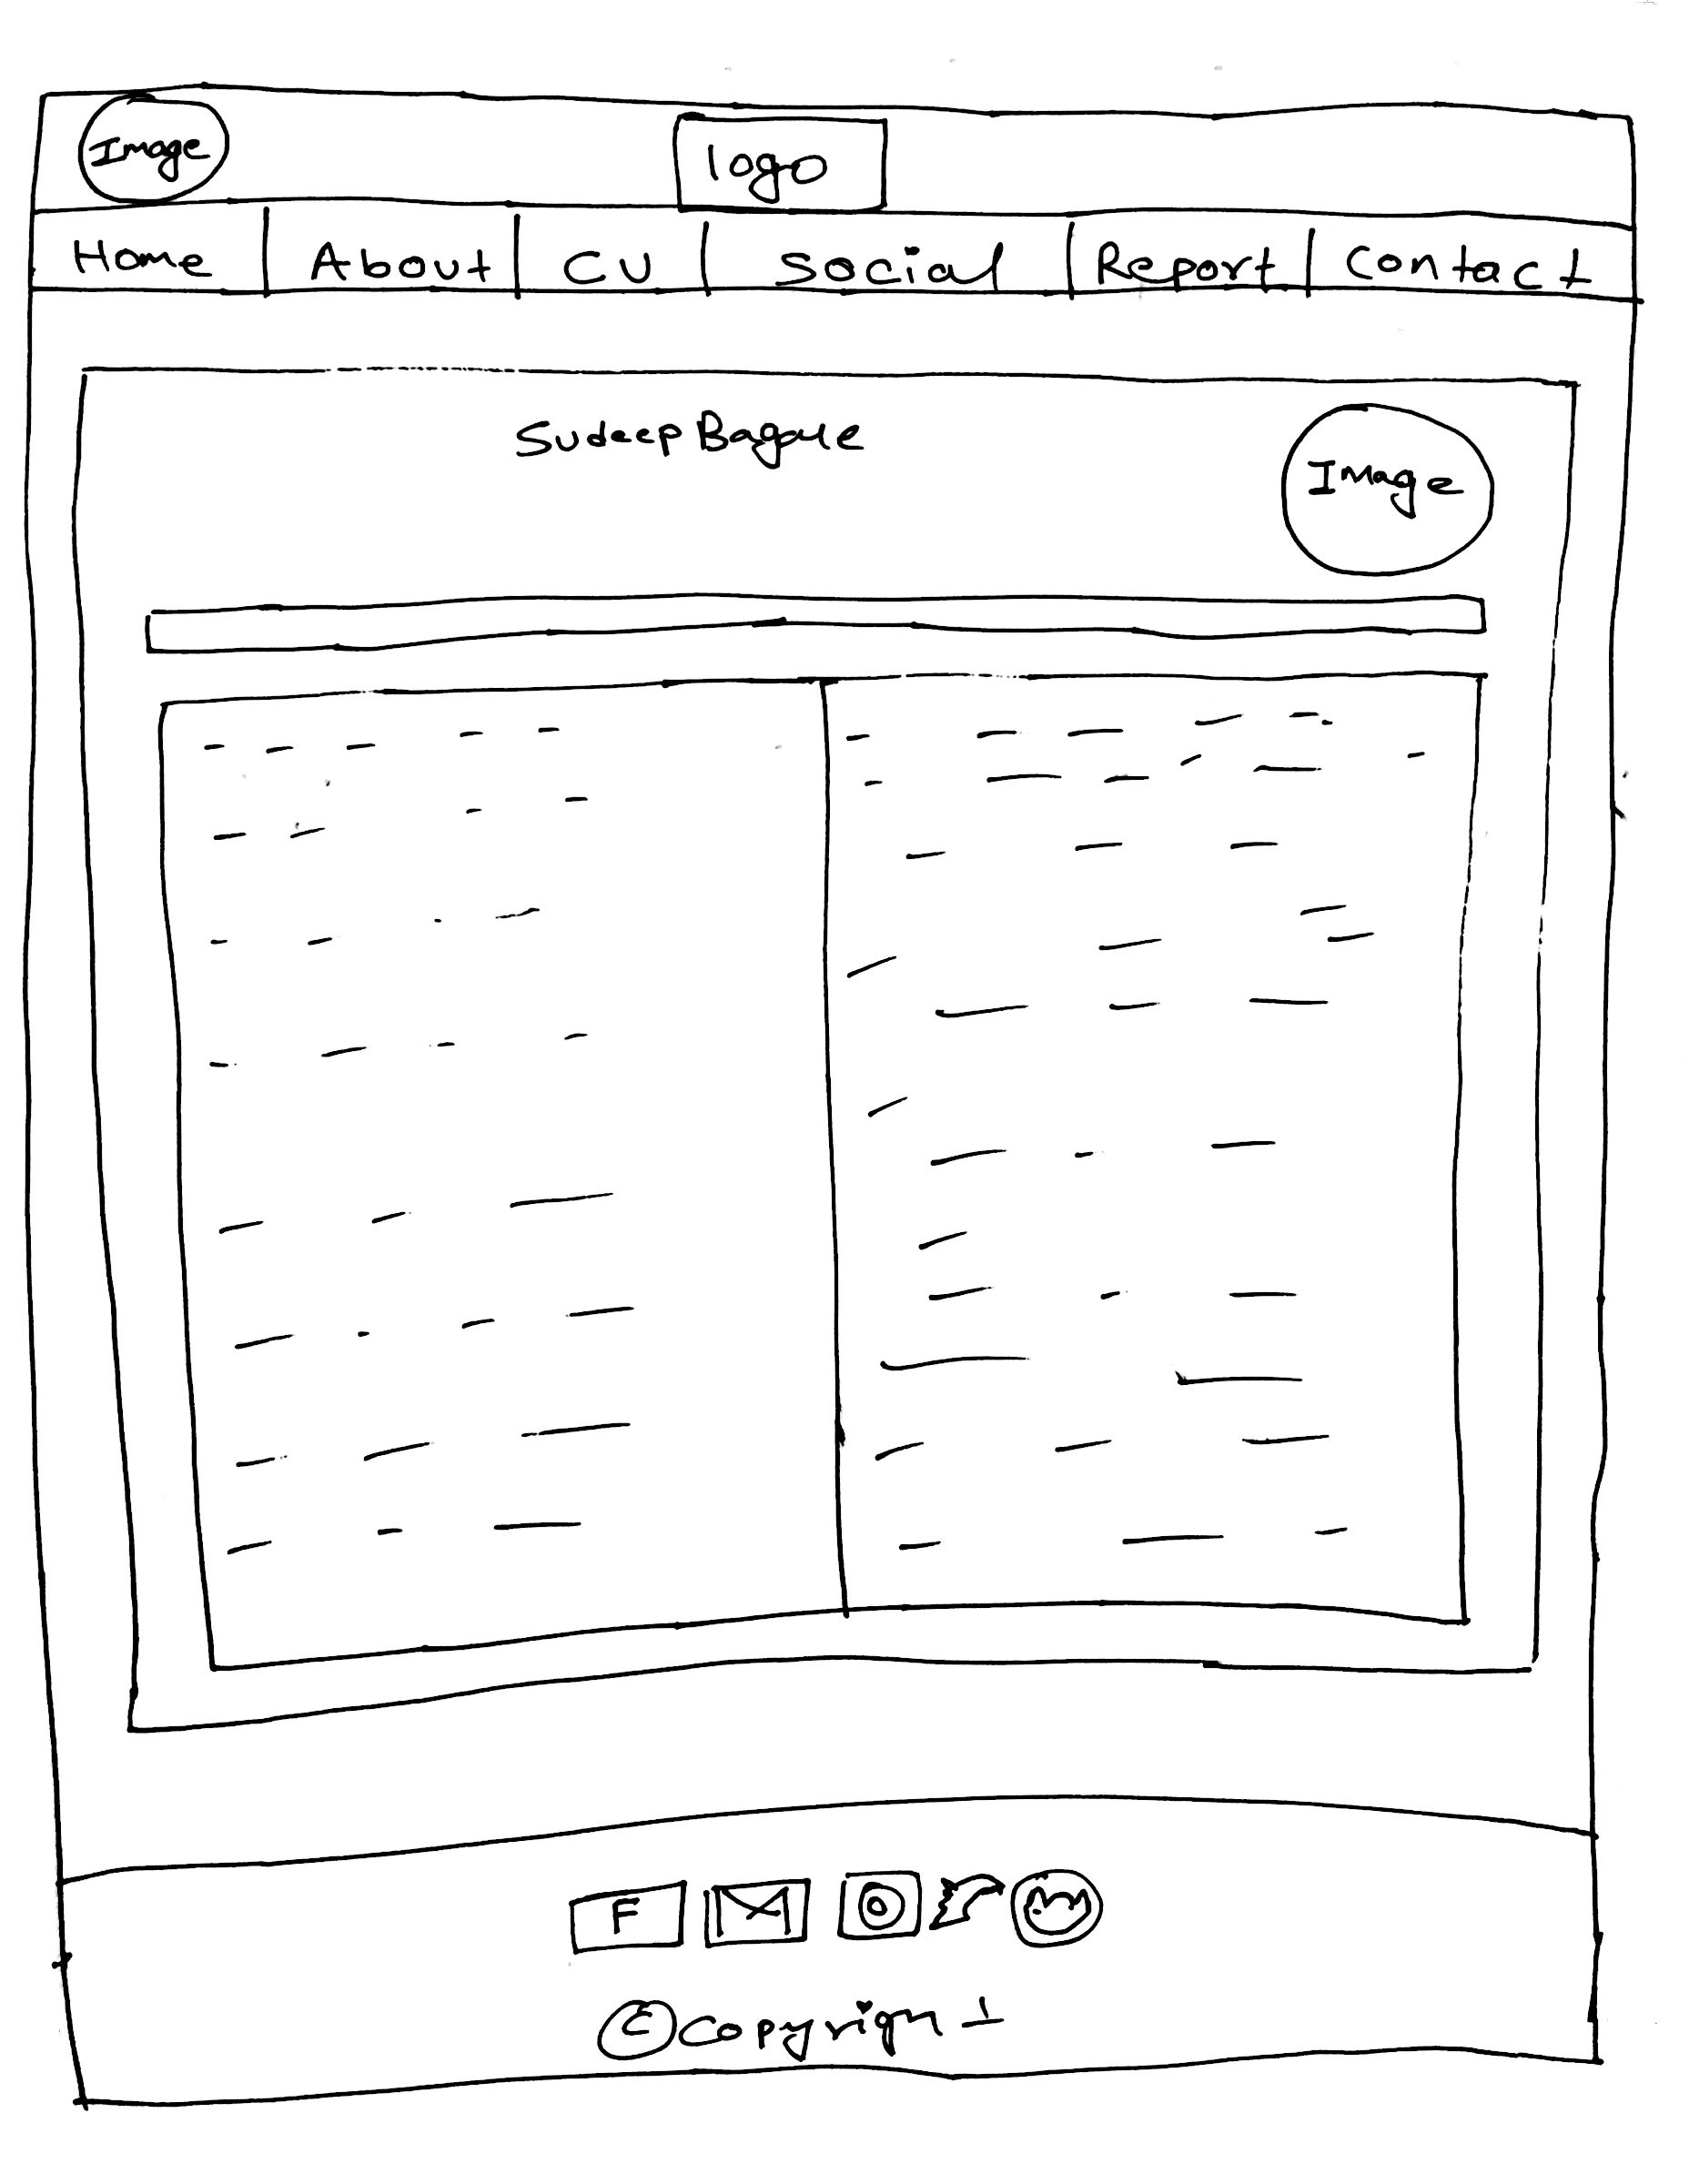 Image
logo
Home About CV Social Report Contact
Sudeep Bagale
Image
F
© Copyright